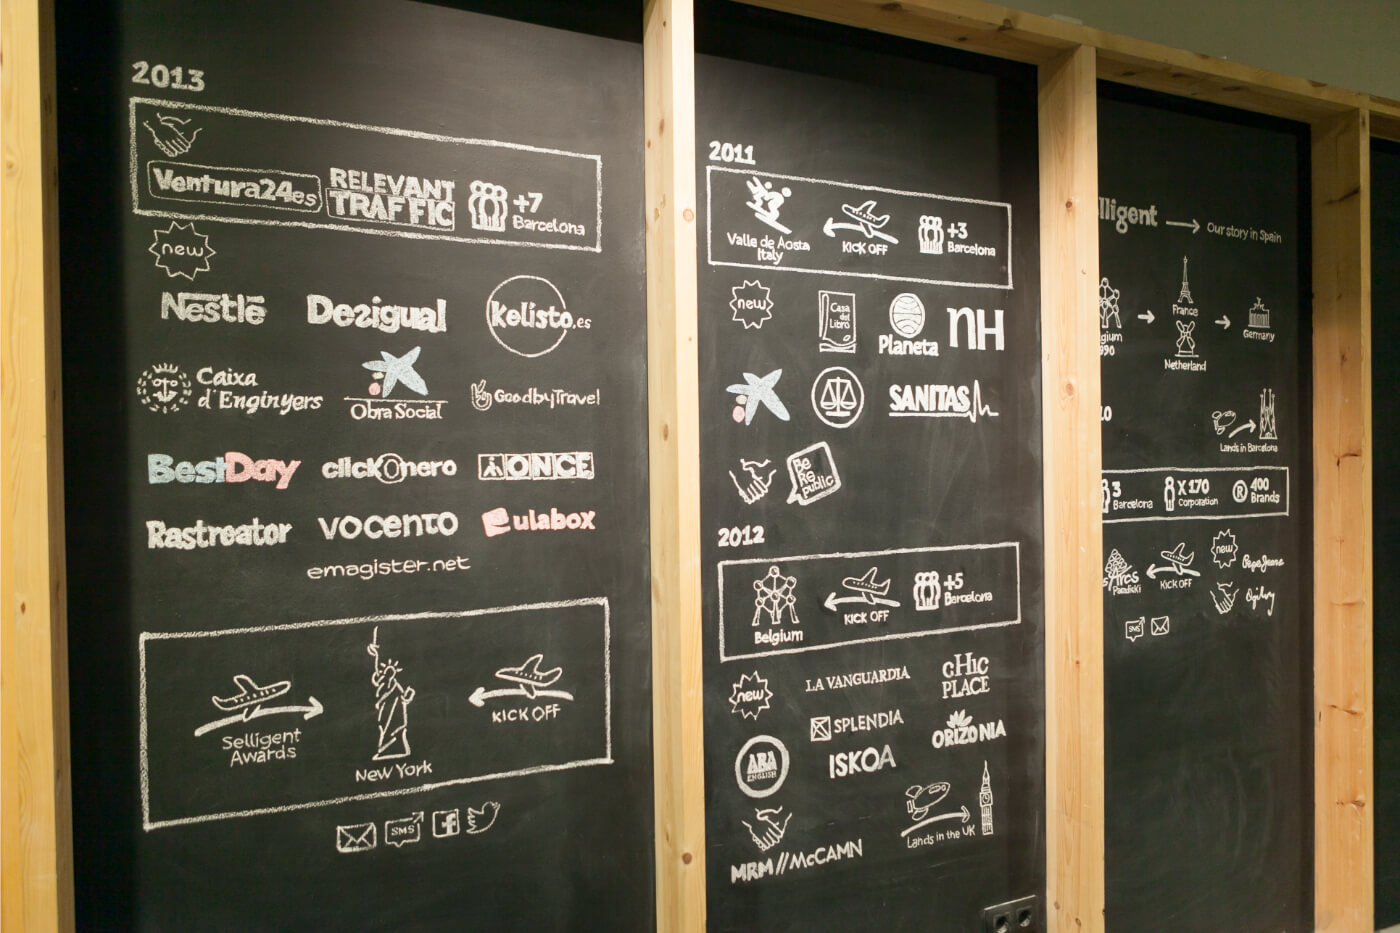 2013
Ventura24es
RELEVANT
TRAFFIC
+7
Barcelona
new
Nestlé
Desigual
Kelisto.es
Caixa
d'Enginyers
Obra Social
GoodbyTravel
BestDay
clickOnero
ONCE
Rastreator
VOCENTO
eulabox
emagister.net
Selligent
Awards
New York
KICK OFF
SMS
f
2011
Valle de Aosta
Italy
KICK OFF
+3
Barcelona
new
Casa
del
Libro
Planeta
NH
SANITAS
Be
Re
public
2012
Belgium
KICK OFF
+5
Barcelona
new
LA VANGUARDIA
CHIC
PLACE
SPLENDIA
ORIZONIA
ARA
ENGLISH
ISKOA
Lands in the UK
MRM//McCAMN
lligent
Our story in Spain
gium
990
France
Netherland
Germany
10
Lands in Barcelona
3
Barcelona
X170
Corporation
®400
Brands
s Arcs
Paradiski
KICK OFF
new
Pepe Jeans
Ogilvy
SMS